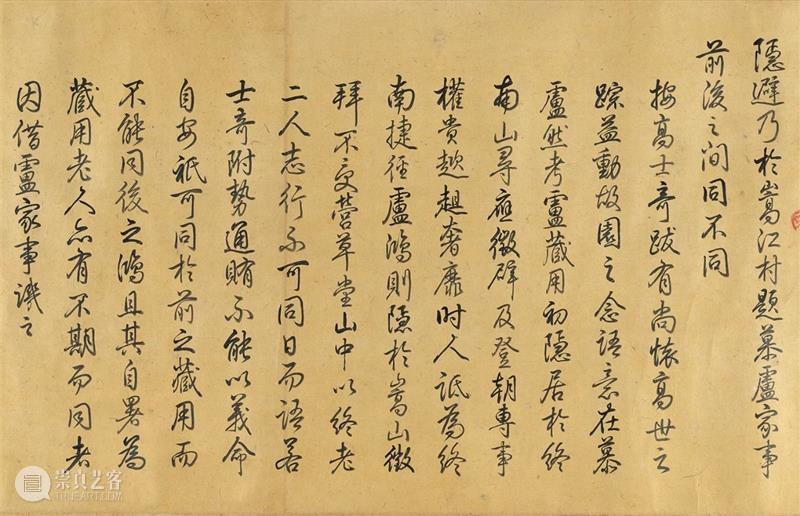 隱避乃於嵩江村題慕盧家事
前後之間同不同
按高士奇跋有尚懷高世之
踪益動故園之念語意在慕
盧然考盧藏用初隱居於終
南山尋應徵辟及登朝專事
權貴趑趄奢靡時人詆為終
南捷徑盧鴻則隱於嵩山徵
拜不受營草堂山中以終老
二人志行不可同日而語若
士奇附勢通賄不能以義命
自安祇可同於前之藏用而
不能同後之鴻且其自署為
藏用老人亦有不期而同者
因借盧家事譏之
崇真艺客
TRUEART.COM